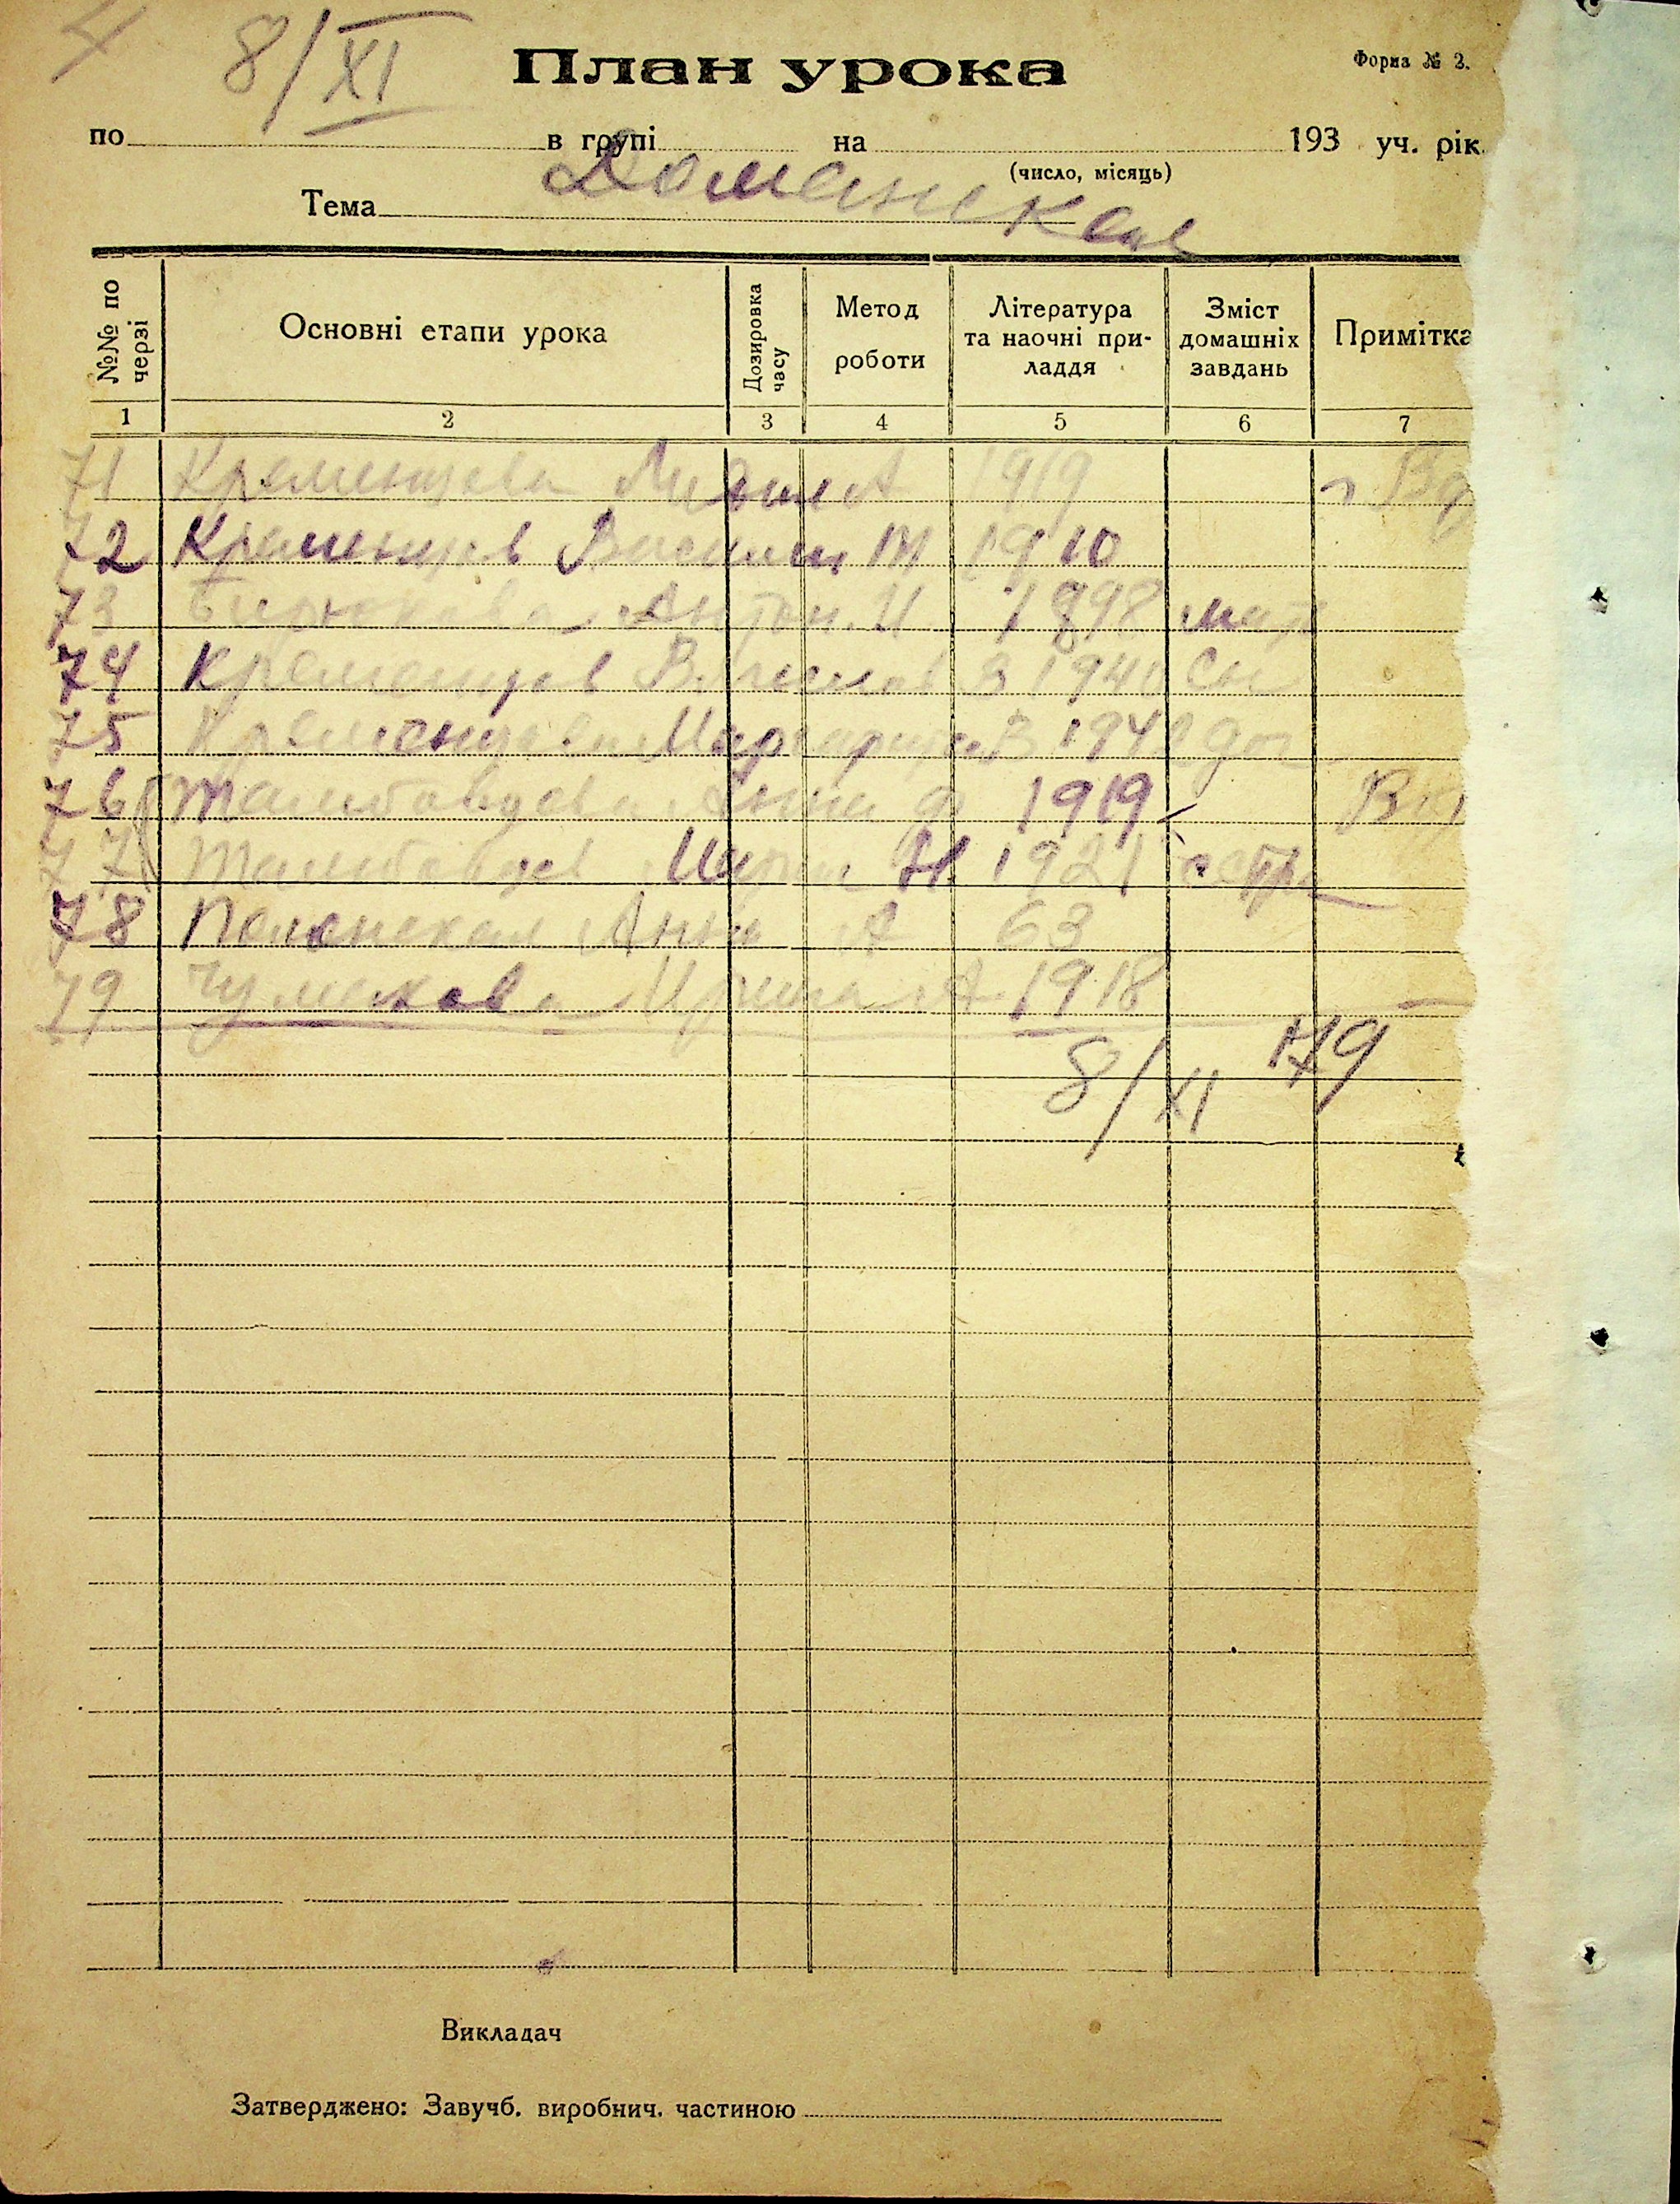 4 8/XI
План урока
Форма № 2.
по в групі на 193 уч. рік
(число, місяць)
Тема
№№ по черзі
Основні етапи урока
Дозировка часу
Метод роботи
Література та наочні приладдя
Зміст домашніх завдань
Примітка
1 2 3 4 5 6 7
71 Кременцева Лидия А 1919
72 Кременцев Василий М 1910
73 Бирюкова Антон. И 1898 мат
74 Кременцов В 1940 сы
75 Кременцова Маргарита В 1942 до
76 Анна Ф 1919
77 Мария Н 1921 сестра
78 Полонская Анна А 63
79 Чумакова Ирина А 1918
8/XI 79
Викладач
Затверджено: Завучб. виробнич. частиною